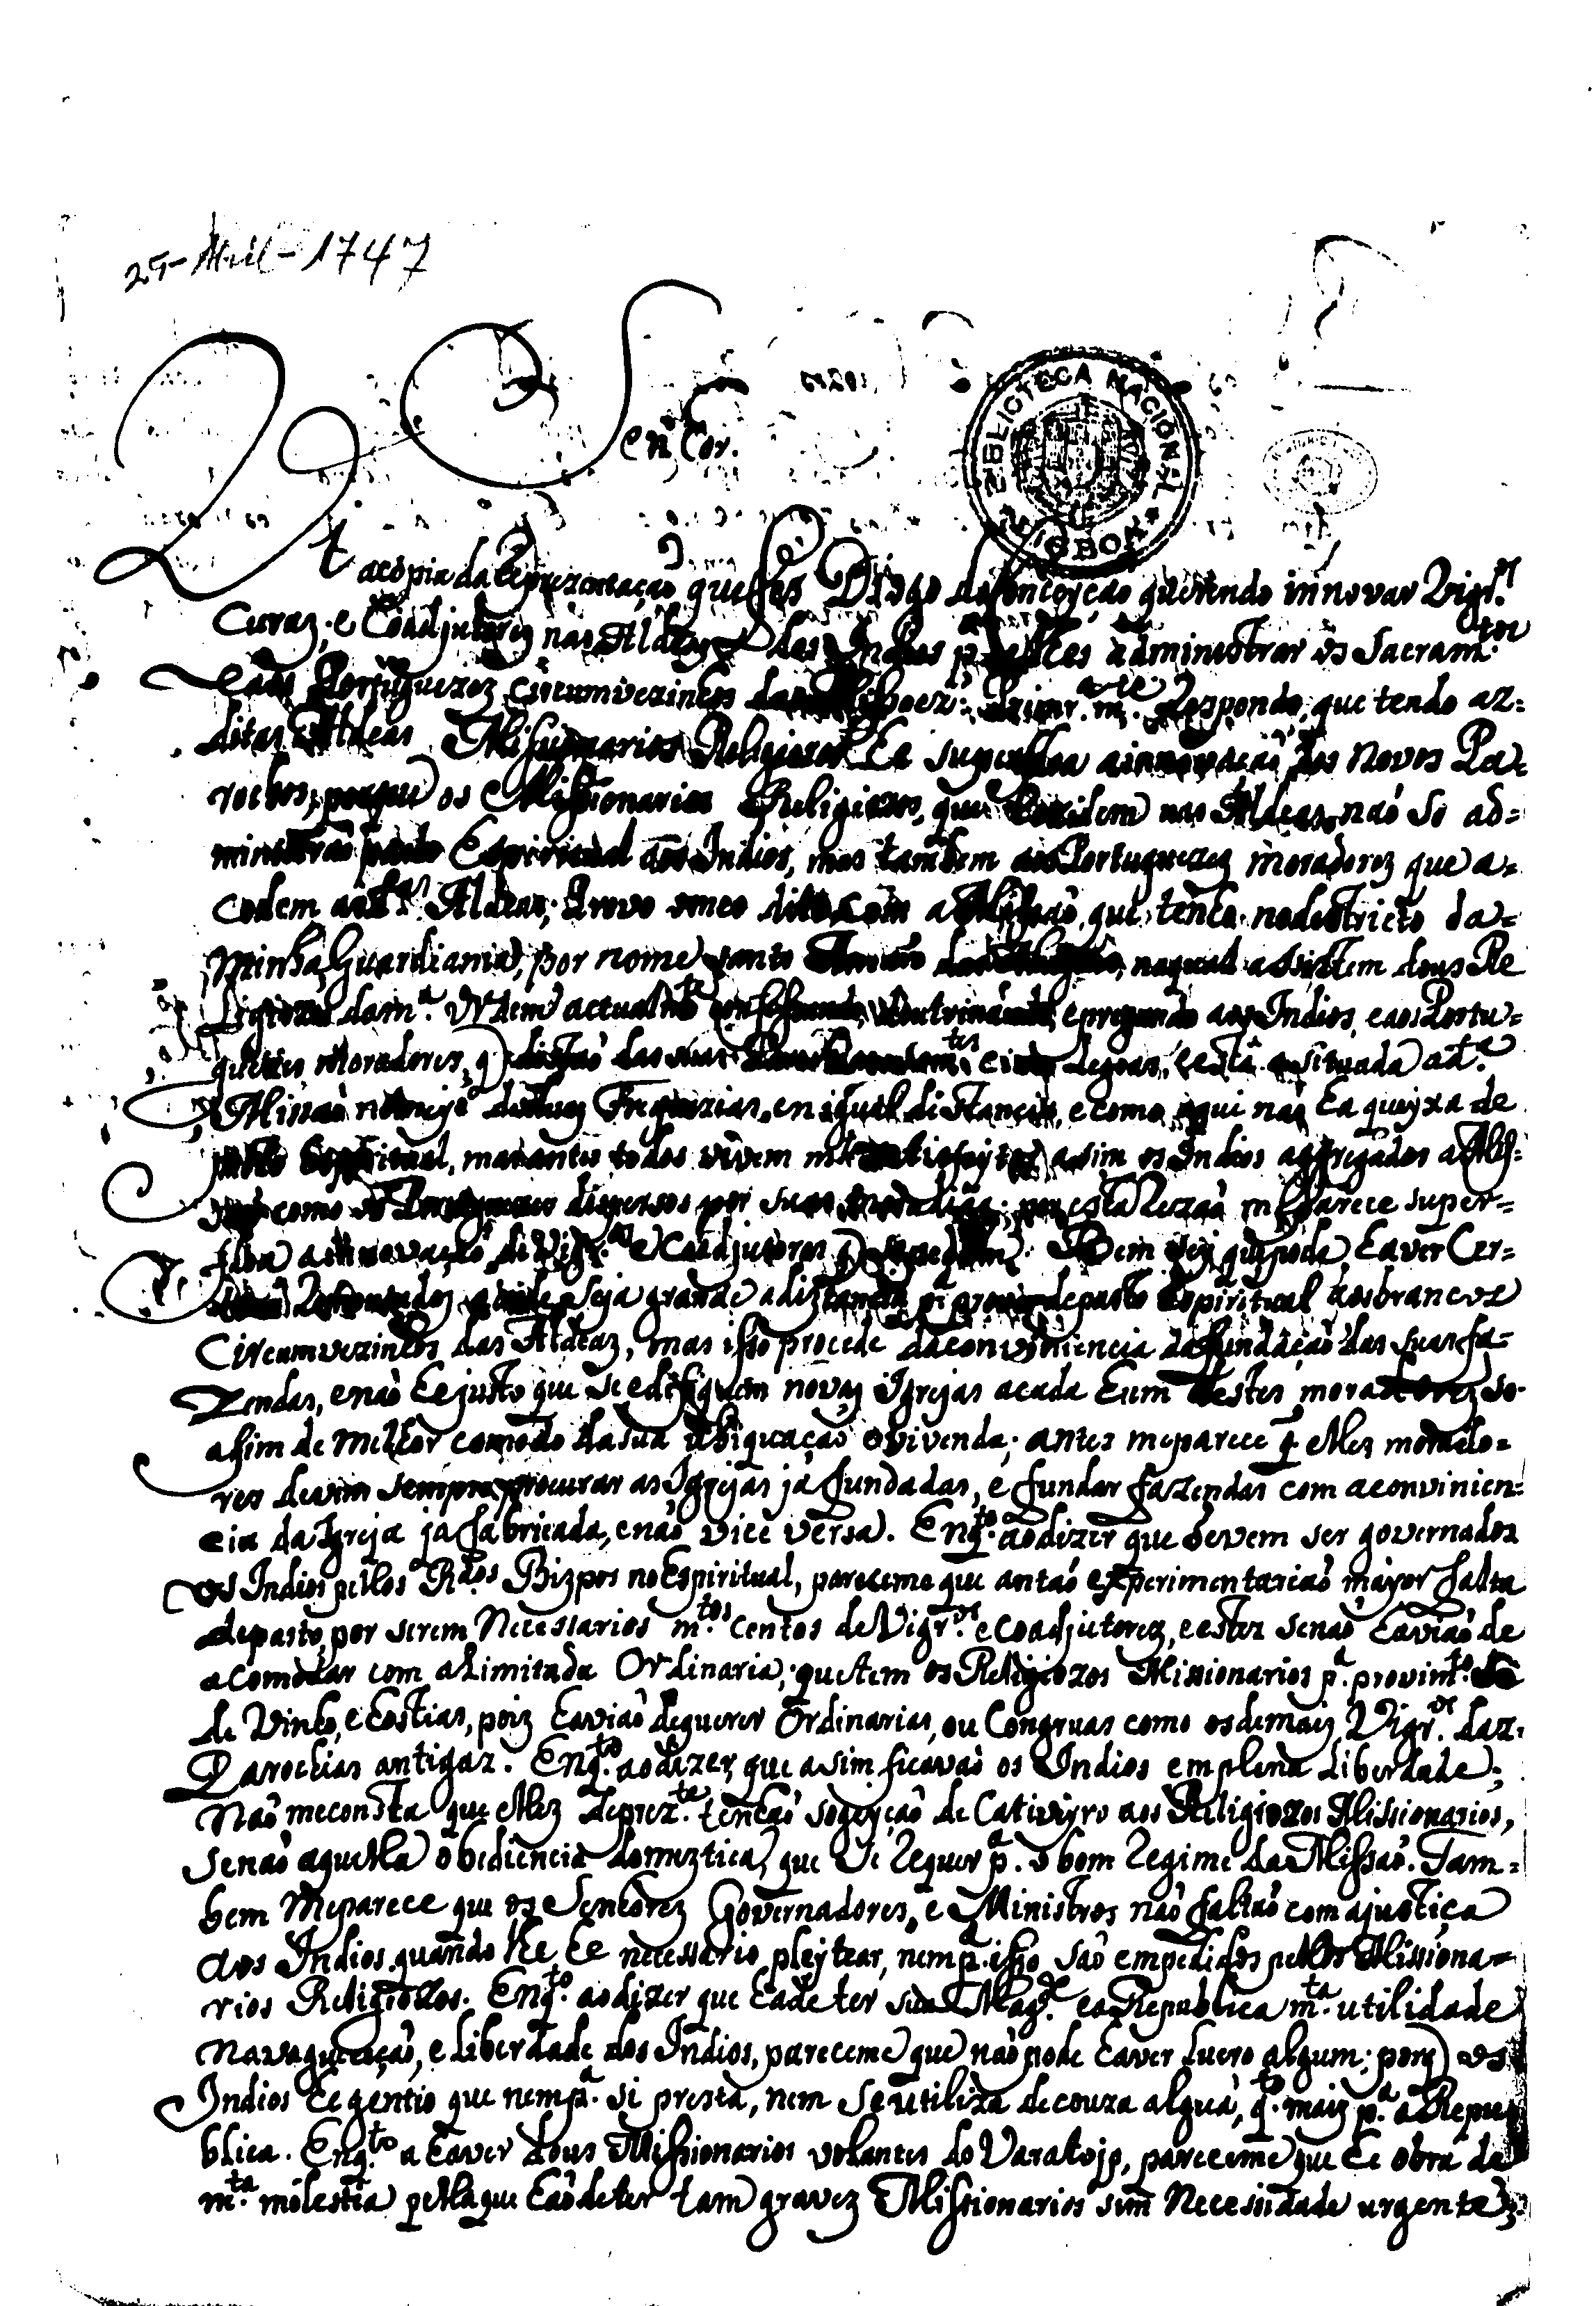 25- Abril - 1747
Senhor.
BIBLIOTECA NACIONAL
LISBOA
acopia da Reprezentação que fes Diogo da Conceyção querendo innovar Vigr.os
Curas, e Coadjutores nas Aldeas dos Indios p.a lhes administrar os Sacram.tos
e aos Portuguezes circumvezinhos das Missoez: Primr.a m.te Respondo, que tendo az=
ditas Aldeas Missionarios Religiozos he superflua a innovação dos novos Pa=
rochos, porque os Missionarios Religiozos, que Rezidem nas Aldeas, não só ad=
ministrão pasto Espiritual aos Indios, mas tambem aos Portuguezes moradores que a=
codem as d.tas Aldeas; Provo o meo dito com a Missão, que tenho no destricto da=
minha Guardiania, por nome Santo naqual assistem dous Re
ligiozos da m.a Ordem actualm.te confessando, doutrinando, e pregando aos Indios, e aos Portu=
guezes moradores, q distão das suas legoas, e está situada a d.ta
Missão no meyo de duas Freguezias, en igual distancia, e como aqui não ha queyxa de
pasto Espiritual, mas antes todos vivem m.to satisfeytos, assim os Indios aggregados a Mis=
são como os Portuguezes dispersos por suas moradias; por esta Rezão me parece super=
flua a innovação de Vigr.os e Coadjutores q se pedem. Bem sey que poda haver Cer=
toens aonde seja grande a diztancia p.a provir de pasto Espiritual aos brancos
Circumvezinhos das Aldeaz, mas isso procede da conviniencia da fundação das suas fa=
zendas, e não he justo que se edifiquem novaz Igrejas acada hum destes moradorez so
afim de melhor comodo da sua ubiquação e vivenda; antes meparece q̃ elles morado=
res devem sempre procurar as Igrejas já fundadas, e fundar fazendas com aconvinien=
cia da Igreja ja fabricada, e não vice versa. Enq.to ao dizer que devem ser governados
os Indios pellos R.dos Bizpos no Espiritual, pareceme que antão experimentarião mayor falta
depasto, por serem Necessarios m.tos centos de Vigr.os e Coadjutorez, e estez senão havião de
acomodar com a Limitada Ordinaria, que tem os Religiozos Missionarios p.a provim.to
de Vinho, e hostias, poiz havião dequerer Ordinarias, ou Congruas como os demaiz Vigr.os daz=
Parochias antigaz. Enq.to ao dizer, que assim ficavão os Indios em plena Liberdade;
Não meconsta que ellez deprez.te tenhão sogeyção de Cativeyro aos Religiozos Missionarios,
Senão aquella obediencia domeztica, que se Requer p.a o bom Regime da Missão. Tam=
bem Meparece que os Senhorez Governadores, e Ministros não faltão com ajustiça
aos Indios quando lhe he necessario pleytear, nem p.r isso são empedidos pellos Missiona=
rios Religiozos. Enq.to ao dizer que hade ter sua Mag.de e a Republica m.ta utilidade
na vagueação, e liberdade dos Indios, pareceme que não pode haver Lucro algum; porq os
Indios he gentio que nem p.a si presta, nem se utiliza de couza alguã, q.to maiz p.a a Repu
blica. Enq.to a haver dous Missionarios volantes do Varatojo, pareceme que he obra de
m.ta molestia pella que hão de ter tam gravez Missionarios sem Necessidade urgente;